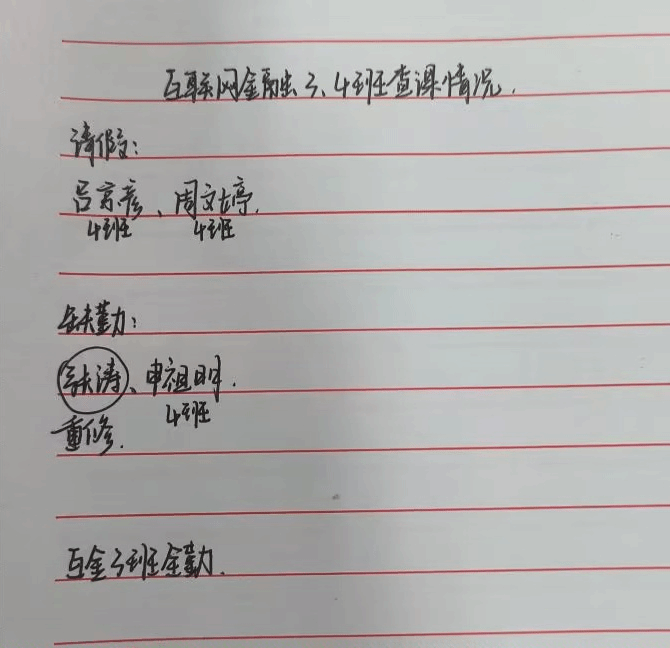 互联网金融3、4班查课情况.
请假:
吕京彦、周文婷.
4班 4班
缺勤:
涛、申祖明.
4班
重修.
互金3班全勤.